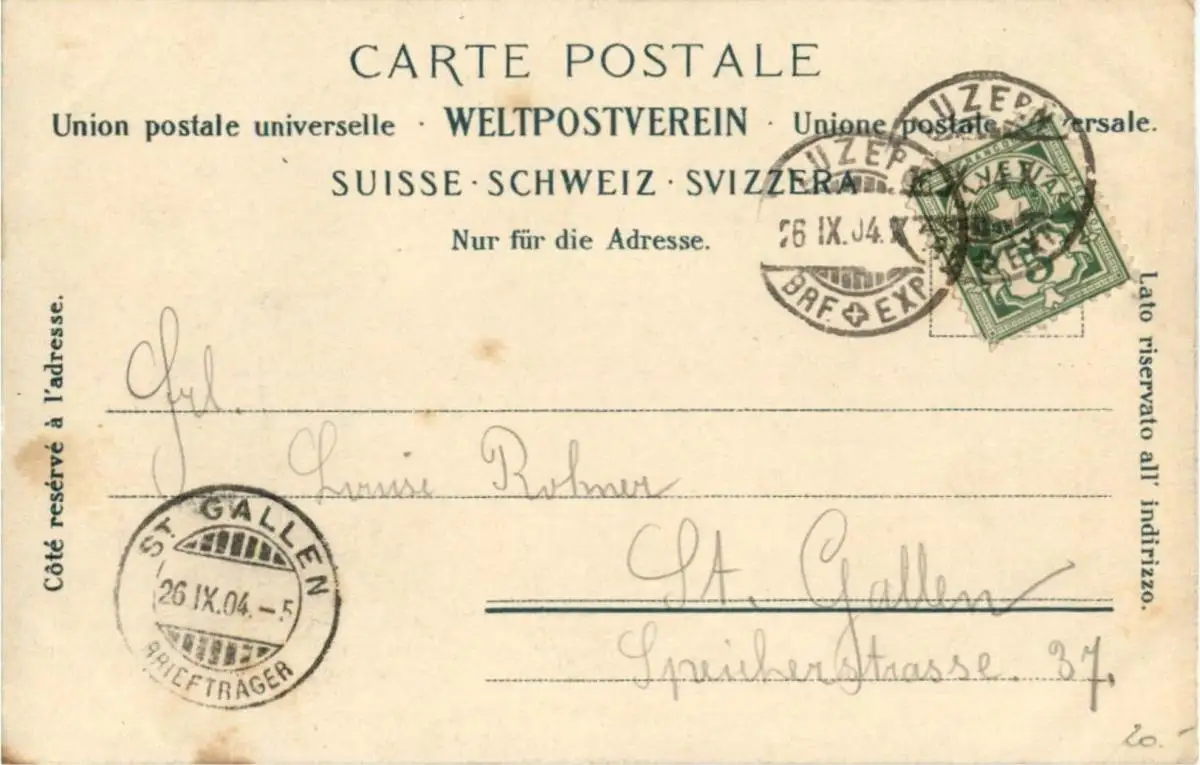 CARTE POSTALE
Union postale universelle · WELTPOSTVEREIN · Unione postale universale.
SUISSE · SCHWEIZ · SVIZZERA
Nur für die Adresse.
LUZERN
26 IX.04.
BRF. EXP.
LUZERN
FRANCO
5
Côté reservé à l'adresse.
Lato riservato all' indirizzo.
Frl.
Louise Rohner
St. Gallen
Speicherstrasse. 37.
ST. GALLEN
26 IX.04. – 5
BRIEFTRÄGER
20.-